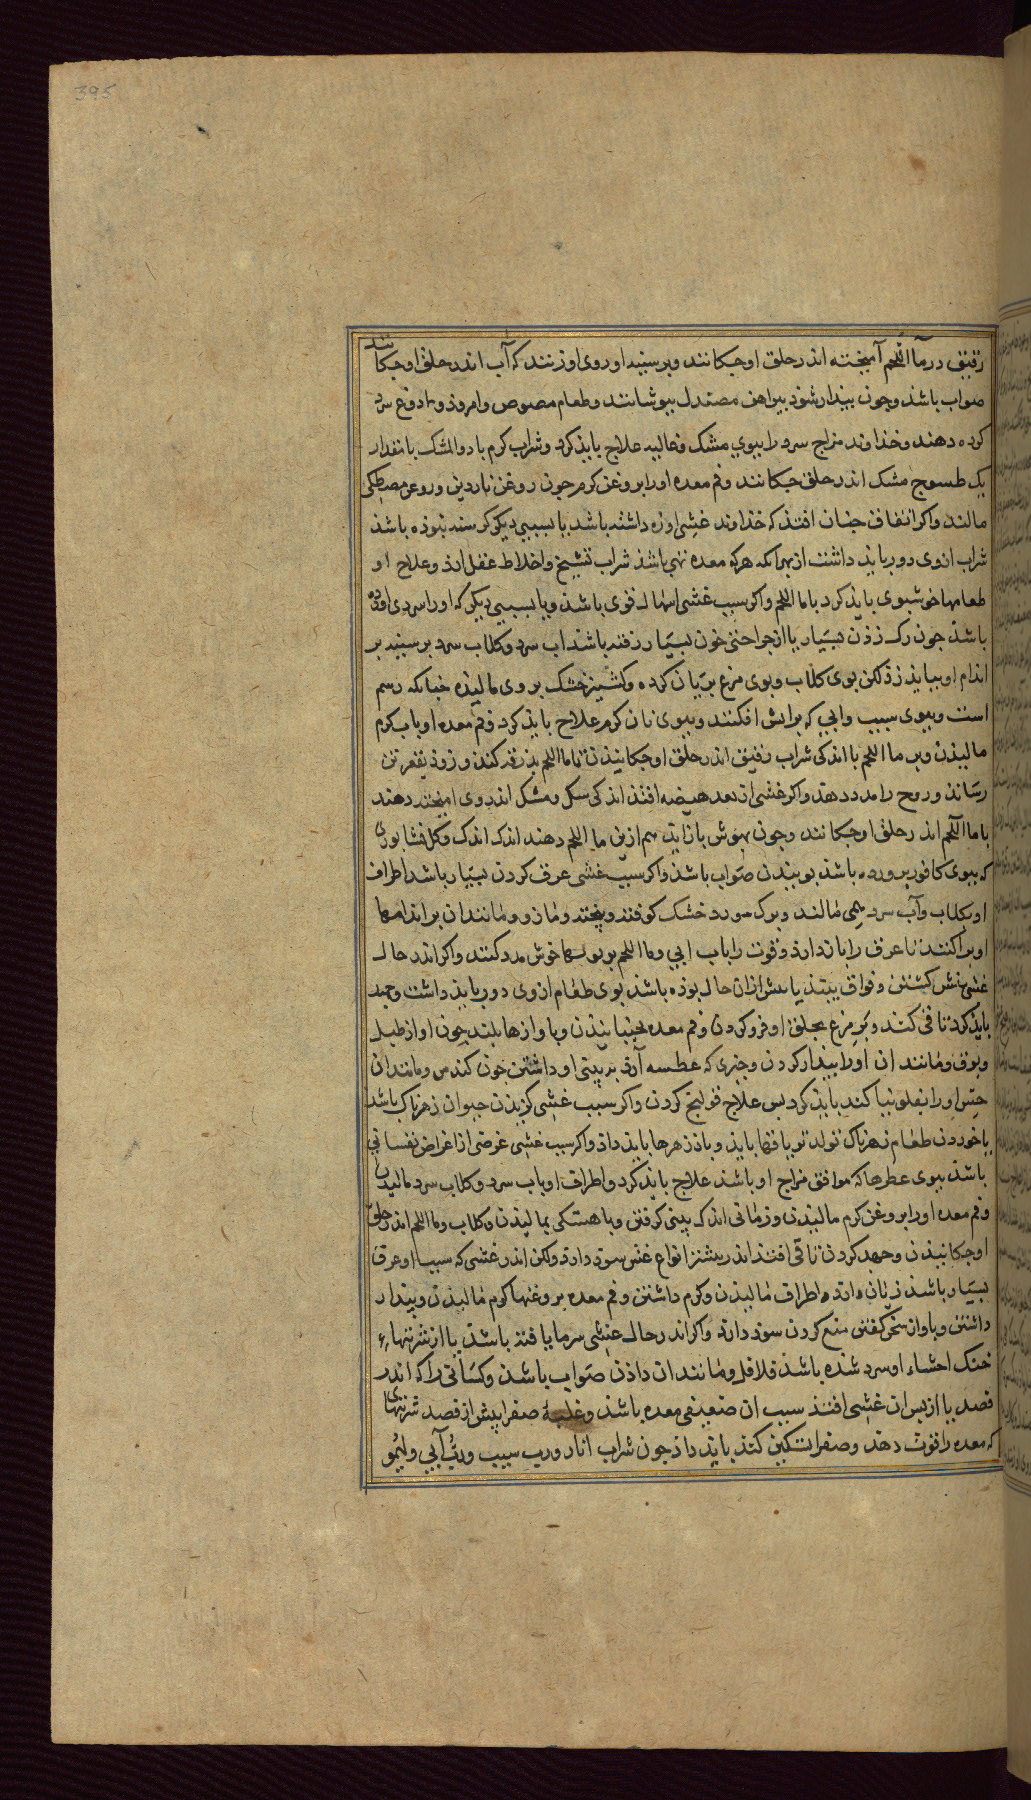 395
رقیق در مآ اللّحم آمیخته اندر حلق او جکانند وبر سینه او روی او زنند که آب اندر حلق او جکانند
صواب باشذ وجون بیدار شوذ بیراهن مصندل ببوشانند وطعام مصوص وامروذ وبا دوغ سرد
کرده دهند وخذاوند مزاج سرد را ببوی مشک وغالیه علاج بایذ کرد وشراب کرم با دوالمشک با مقدار
یک طسوج مشک اندر حلق جکانند وفم معده اورا بروغن کرم جون روغن ناردین وروغن مصطکی
مالند واکر اتفاق جنان افتذ که خذاوند غشی روزه داشته باشد یا بسببی دیکر کرسنه بوذه باشذ
شراب ازوی دور بایذ داشت از بهر آنکه هرکه معده تهی باشذ شراب تشنج واختلاط عقل آرذ وعلاج او
طعامها خوشبوی بایذ کرد با ما اللحم واکر سبب غشی اسهال قوی باشذ ویا بسببی دیکر که اورا سردی افتاده
باشذ جون رک زذن بسیار یا از جراحتی خون بسیار رفته باشذ اب سرد وکلاب سرد بر سینه بر
اندام او نبایذ زذ لکن بوی کلاب وبوی مرغ بریان کرده وکشنیز خشک بر وی مالیذه جنانکه رسم
است وببوی سیب وآبی که بر اتش افکنند وببوی نان کرم علاج بایذ کرد وفم معده او باب کرم
مالیذن وبر ما اللحم با اندکی شراب رقیق اندر حلق او جکانیذن تا ما اللحم بذرقه کند وزوذ بقعر تن
رساند وروح را مدد دهد واکر غشی از بعد هیضه افتذ اندکی سک ومشک اندروی امیخته دهند
با ما اللحم اندر حلق او جکانند وجون بهوش باز آید هم ازین ما اللحم دهند اندک اندک وکل نشابوری
که ببوی کافور برورده باشذ بوییدن صواب باشذ واکر سبب غشی عرق کردن بسیار باشد اطراف
او بکلاب وآب سرد همی مالند وبرک مورد خشک کوفته وبیخته ومازو ومانند ان بر اندامها
او براکنند تا عرق را باز دارد وقوت را باب ابی وما اللحم بویها خوش مدد کنند واکر اندر حال
غشی منش کشتن وفواق بیند یا بیش از ان حال بوذه باشذ بوی طعام ازوی دور بایذ داشت وجهد
بایذ کرد تا قی کند وبر مرغ بحلق او فرو کردن وفم معده بجنبانیذن وباوازها بلند جون اواز طبل
وبوق ومانند ان اورا بیدار کردن وجیزی که عطسه آرد بر بینی او داشتن جون کندس ومانند ان
حس اورا بیذار کردن بس علاج قولنج کردن واکر سبب غشی کزیذن حیوان زهرناک باشذ
یا خوردن طعام زهرناک تولد تریاقها بایذ وباذزهرها بایذ داذ واکر سبب غشی عرضی از اعراض نفسانی
باشذ ببوی عطرها که موافق مزاج او باشذ علاج بایذ کرد واطراف او باب سرد وکلاب سرد مالیدن
وفم معده اورا بروغن کرم مالیذن وزمانی اندک بینی کرفتن وباهستکی بمالیذن وکلاب وما اللحم اندر حلق
او جکانیذن وجهد کردن تا قی افتذ اندر بیشتر انواع غشی سوذ دارذ ولکن اندر غشی که سبب او عرق
بسیار باشذ زیان دارد واطراف مالیذن وکرم داشتن وفم معده بروغنها کرم مالیذن وبیدار
داشتن وباواز سخن کفتن منع کردن سوذ دارد واکر اندر حال غشی سرما یافته باشذ یا از شربتهاء
خنک احشاء او سرد شذه باشذ فلافلی ومانند ان داذن صواب باشذ وکسانی را که اندر
فصد یا از بس ان غشی افتذ سبب ان ضعیفی معده باشذ وغلبهٔ صفرا بیش از فصد شربتهای
که معده را قوت دهد وصفرا تسکین کند بایذ داذ جون شراب انار ورب سیب وربّ آبی ولیمو